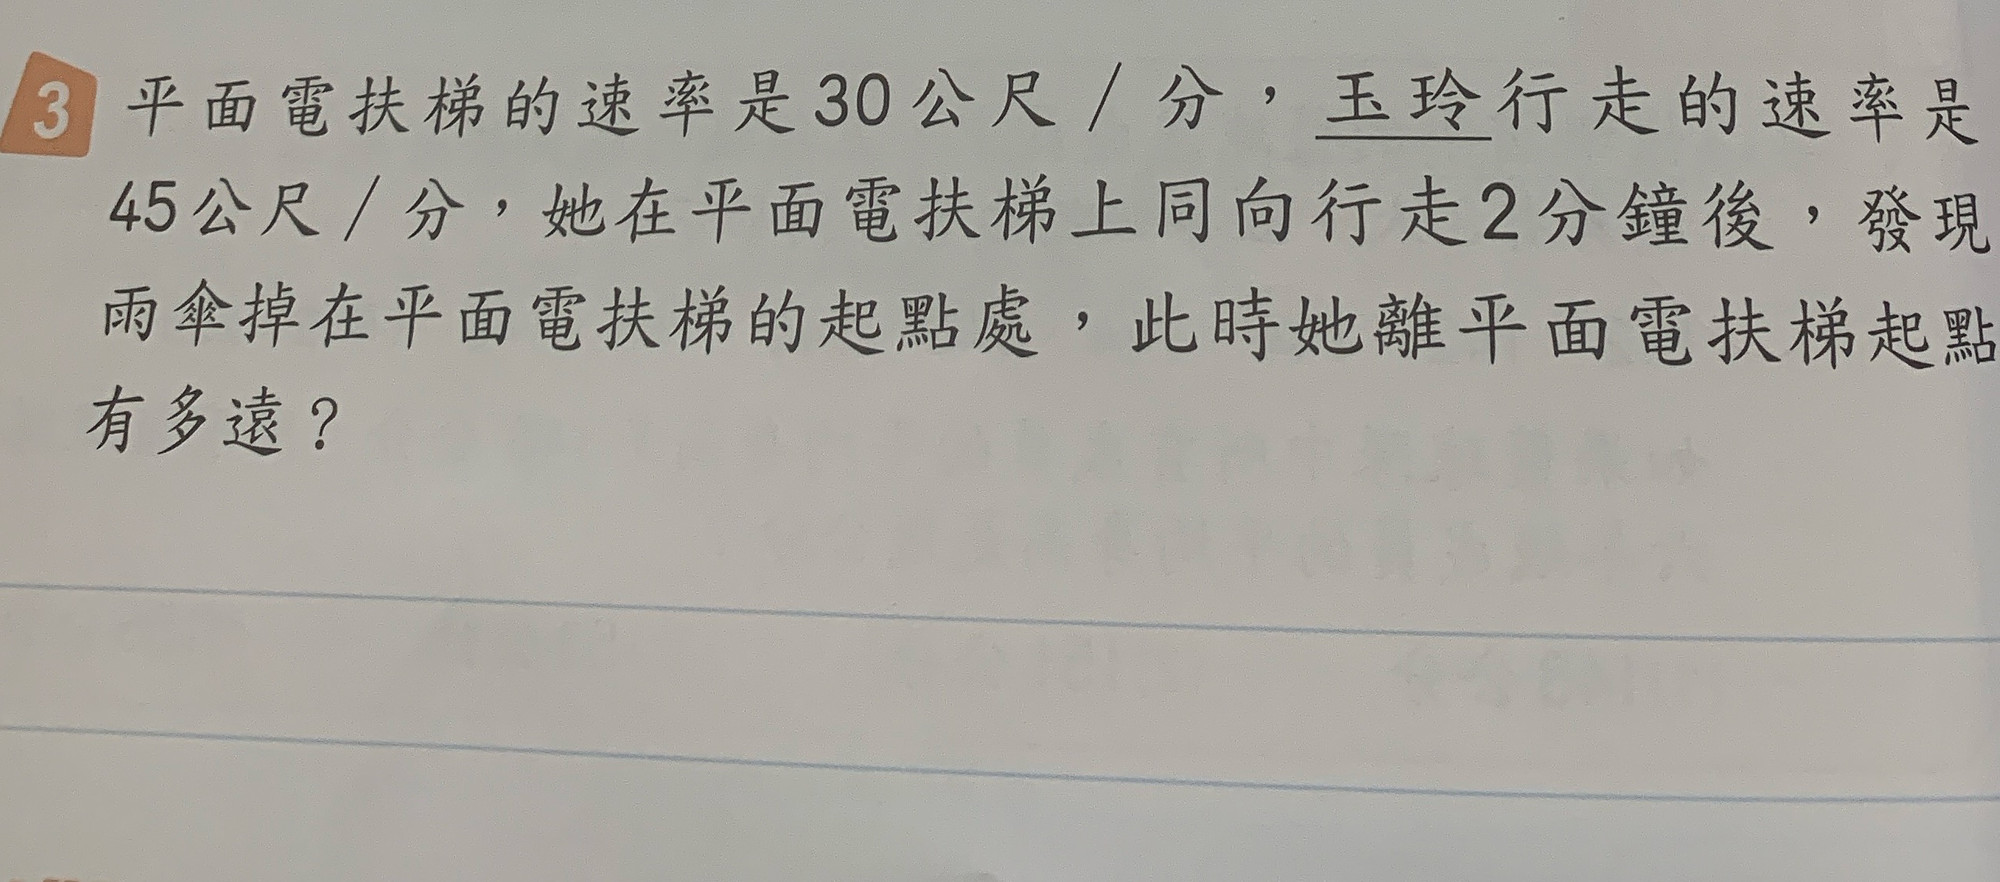 3 平面電扶梯的速率是30公尺/分，玉玲行走的速率是
45公尺/分，她在平面電扶梯上同向行走2分鐘後，發現
雨傘掉在平面電扶梯的起點處，此時她離平面電扶梯起點
有多遠？